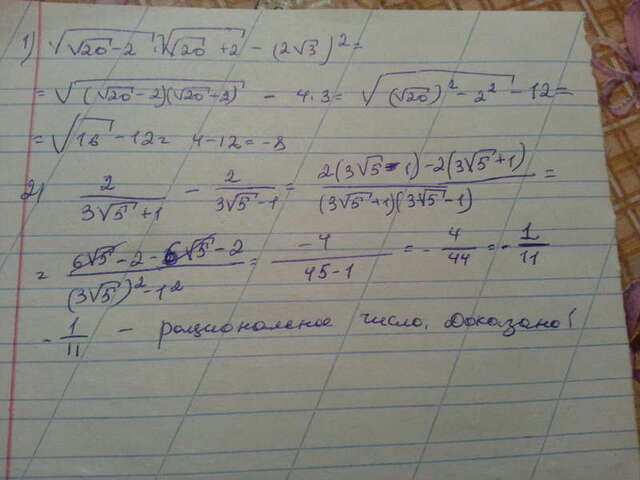 1) √(√20 - 2) · √(√20 + 2) - (2√3)² =
= √((√20 - 2)(√20 + 2)) - 4·3 = √((√20)² - 2²) - 12 =
= √16 - 12 = 4 - 12 = -8
2) 2/(3√5 + 1) - 2/(3√5 - 1) = (2(3√5 - 1) - 2(3√5 + 1))/((3√5 + 1)(3√5 - 1)) =
= (6√5 - 2 - 6√5 - 2)/((3√5)² - 1²) = -4/(45 - 1) = -4/44 = -1/11
-1/11 - рациональное число. Доказано!